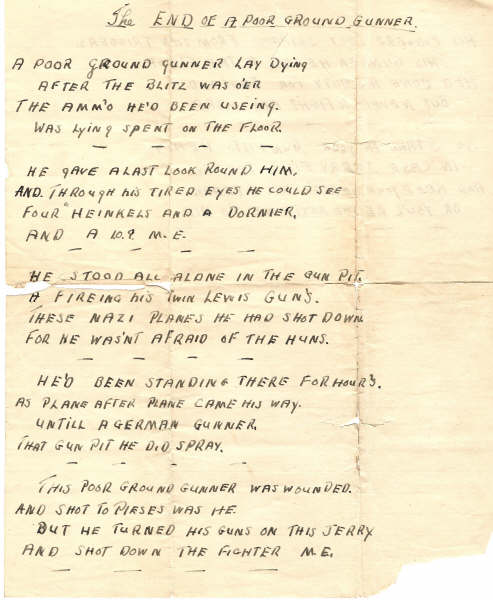 The END OF A POOR GROUND GUNNER.
A POOR GROUND GUNNER LAY DYING
AFTER THE BLITZ WAS O'ER
THE AMM'O HE'D BEEN USEING.
WAS LYING SPENT ON THE FLOOR.
HE GAVE A LAST LOOK ROUND HIM,
AND THROUGH HIS TIRED EYES HE COULD SEE
FOUR HEINKELS AND A DORNIER,
AND A 109 M.E.
HE STOOD ALL ALONE IN THE GUN PIT.
A FIREING HIS TWIN LEWIS GUN'S.
THESE NAZI PLANES HE HAD SHOT DOWN
FOR HE WAS'NT AFRAID OF THE HUNS.
HE'D BEEN STANDING THERE FOR HOUR'S.
AS PLANE AFTER PLANE CAME HIS WAY.
UNTILL A GERMAN GUNNER.
THAT GUN PIT HE DID SPRAY.
THIS POOR GROUND GUNNER WAS WOUNDED.
AND SHOT TO PIESES WAS HE.
BUT HE TURNED HIS GUNS ON THIS JERRY
AND SHOT DOWN THE FIGHTER M.E.